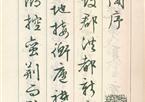 閣序
故郡洪都新
地接衡廬襟
湖控蛮荆而